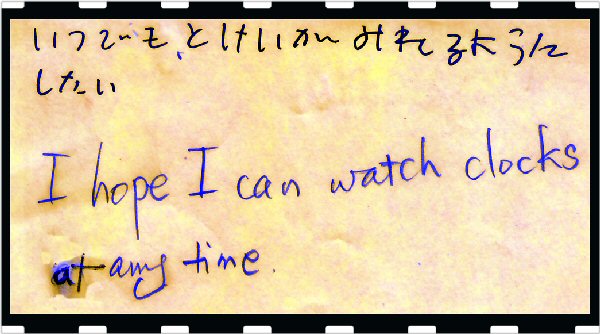 いつでも、とけいがみれるように
したい
I hope I can watch clocks
at any time.